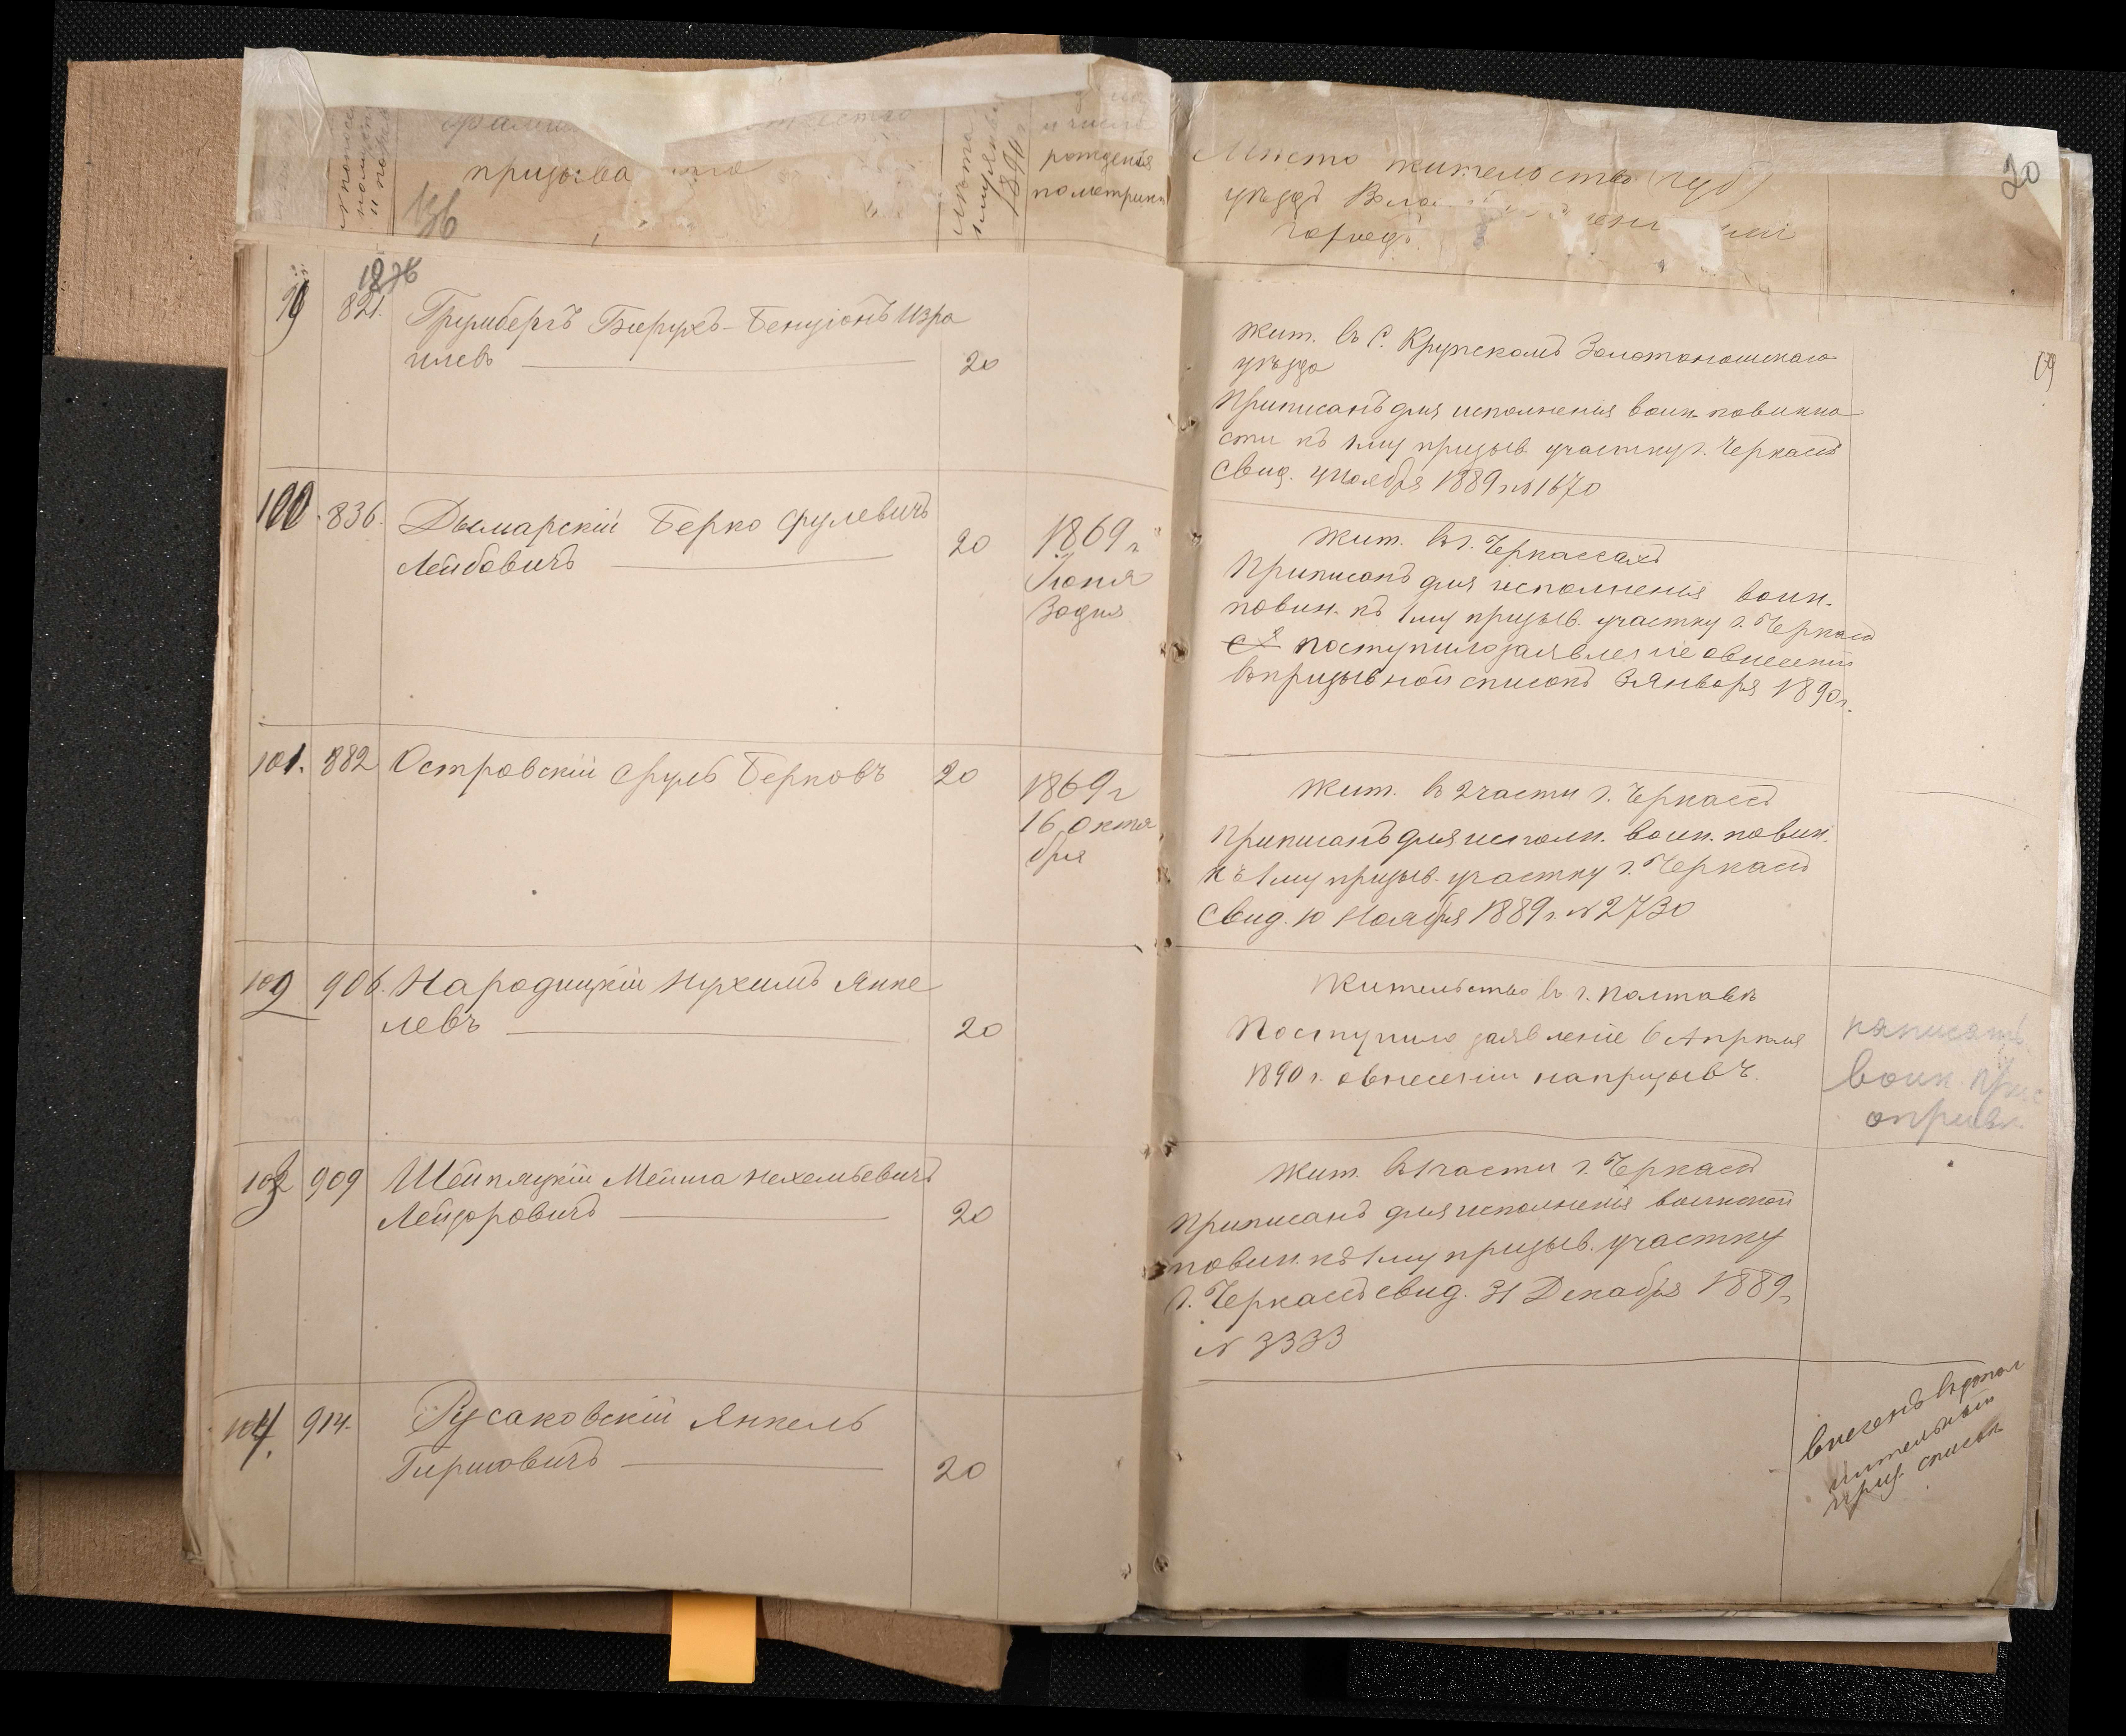 призыва
лѣта
1890
рожденія
по метрики
Мѣсто жительства (губ)
уѣздъ
городъ
20
136
1836
99 821. Грумбергъ Борухъ-Бенціонъ Изра
илевъ 20
Жит. въ С. Крупскомъ Золотоношскаго
уѣзда
69
Приписанъ для исполненія воин. повинно
сти къ 1му призыв. участку г. Черкассъ
Свид. 4 Ноября 1889 № 1670
100. 836. Дымарскій Берко Срулевичъ
Лейбовичъ 20
1869 г
Іюня
30 дня
Жит. въ г. Черкассахъ
Приписанъ для исполненія воин.
повин. къ 1му призыв. участку г. Черкассъ
поступило заявленіе о внесеніи
въ призывной списокъ 3 Января 1890 г.
101. 882 Островскій Сруль Берковъ 20
1869 г
16 Октя
бря
Жит. въ 2 части г. Черкассъ
Приписанъ для исполн. воин. повин.
къ 1му призыв. участку г. Черкассъ
Свид. 10 Ноября 1889 г. № 2730
102 906. Народицкій Нухимъ Янке
левъ 20
Жительство въ г. Полтавѣ
Поступило заявленіе 6 Апрѣля
1890 г. о внесеніи на призывъ.
написать
воин.
103 909 Шейпяцкій Мейша Нехемьевичъ
Лейзоровичъ 20
Жит. въ 1 части г. Черкассъ
Приписанъ для исполненія воинской
повин. къ 1му призыв. участку
г. Черкассъ свид. 31 Декабря 1889 г
№ 3333
104. 914. Русаковскій Янкель
Гиршовичъ 20
внесенъ въ допол
нительный
приз. списокъ